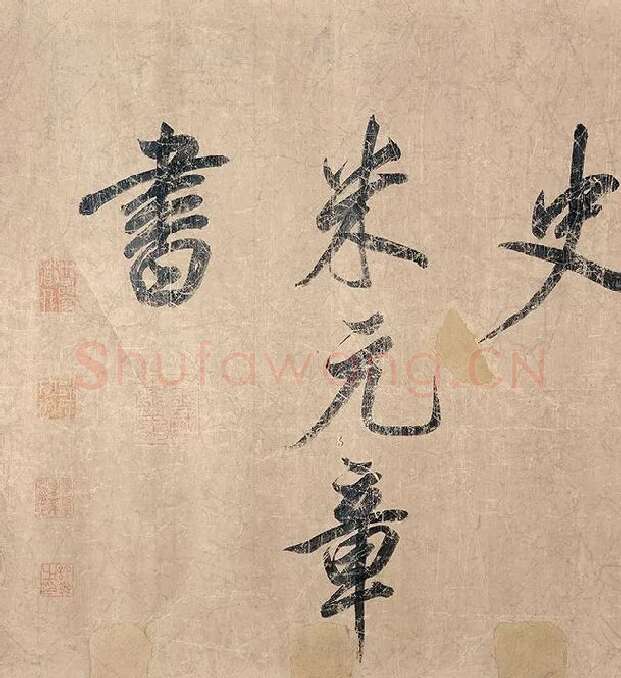 史
米元章
書
Shufawang.CN